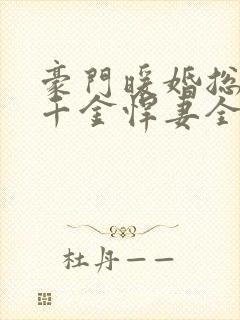 豪門暖婚總
千金悍妻全
杜丹——